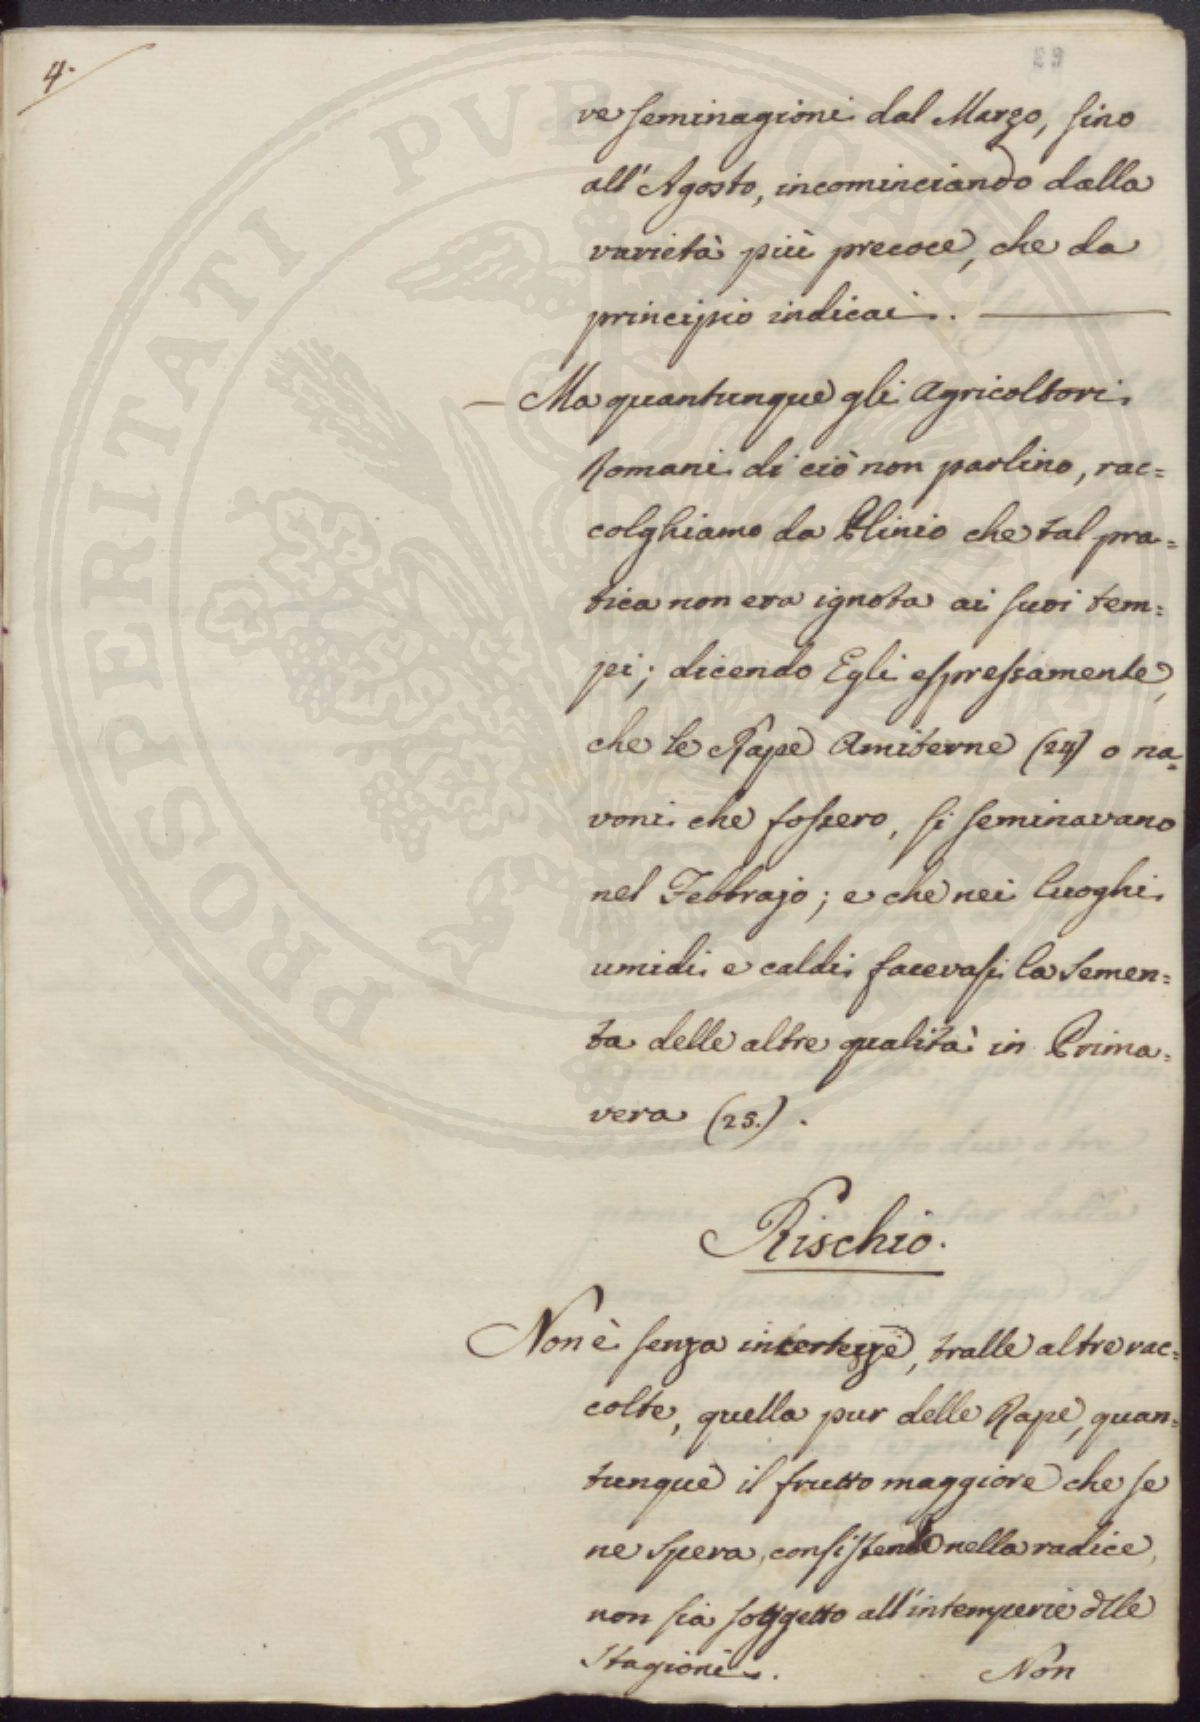 4.
29
ve seminagioni dal Marzo, sino
all'Agosto, incominciando dalla
varietà più precoce, che da
principio indicai.
— Ma quantunque gli Agricoltori
Romani di ciò non parlino, rac=
colghiamo da Plinio che tal pra=
tica non era ignota ai suoi tem=
pi; dicendo Egli espressamente,
che le Rape Amiterne (24) o na=
voni che fossero, si seminavano
nel Febbrajo; e che nei luoghi
umidi e caldi facevasi la semen=
ta delle altre qualità in Prima=
vera (25.).
Rischio.
Non è senza incertezze, tralle altre rac=
colte, quella pur delle Rape, quan=
tunque il frutto maggiore che se
ne spera, consistendo nella radice,
non sia soggetto all'intemperie dlle
Stagioni.
Non
PROSPERITATI PUBLICAE AUGENDAE